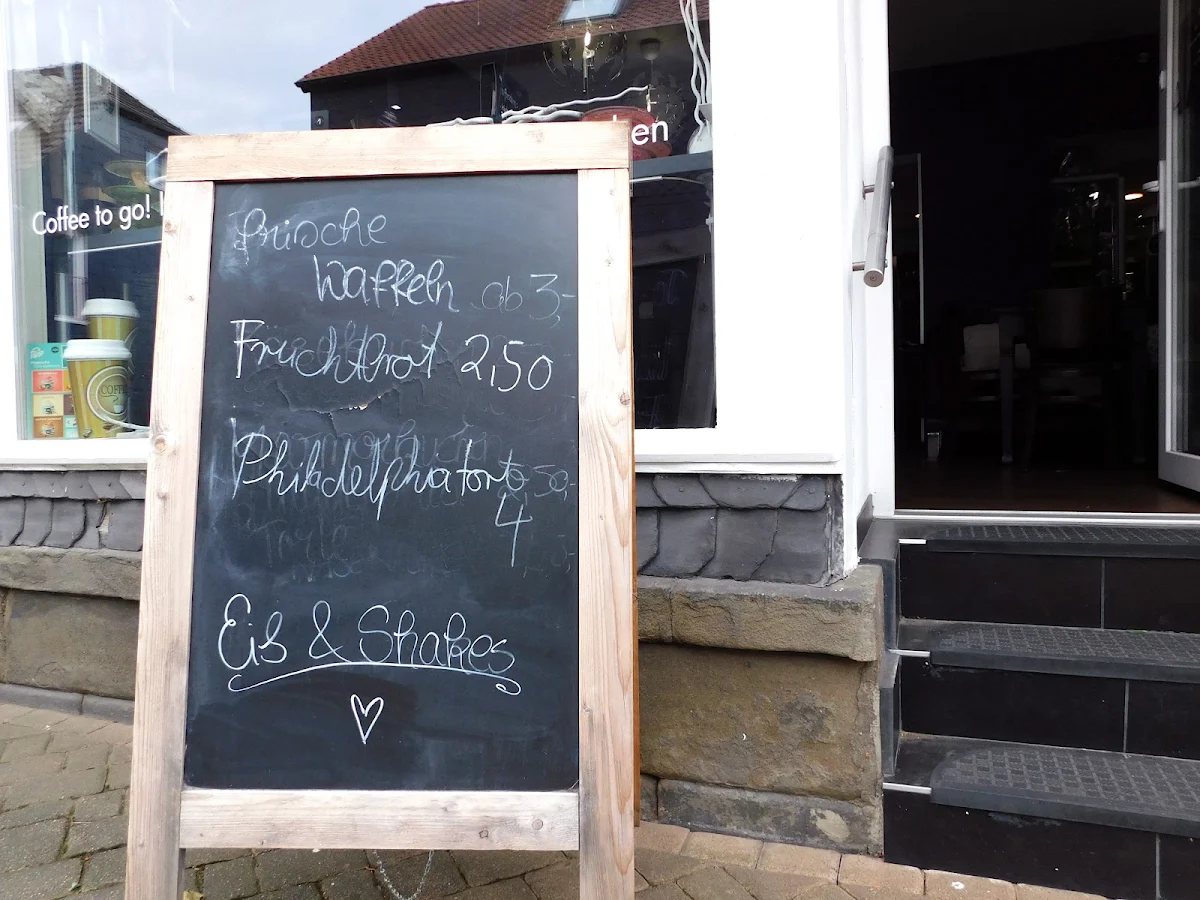 Coffee to go!
en
COFFE
frische
Waffeln ab 3,-
Früchtbrot 2,50
Philadelphiatorte
4
Eis & Shakes